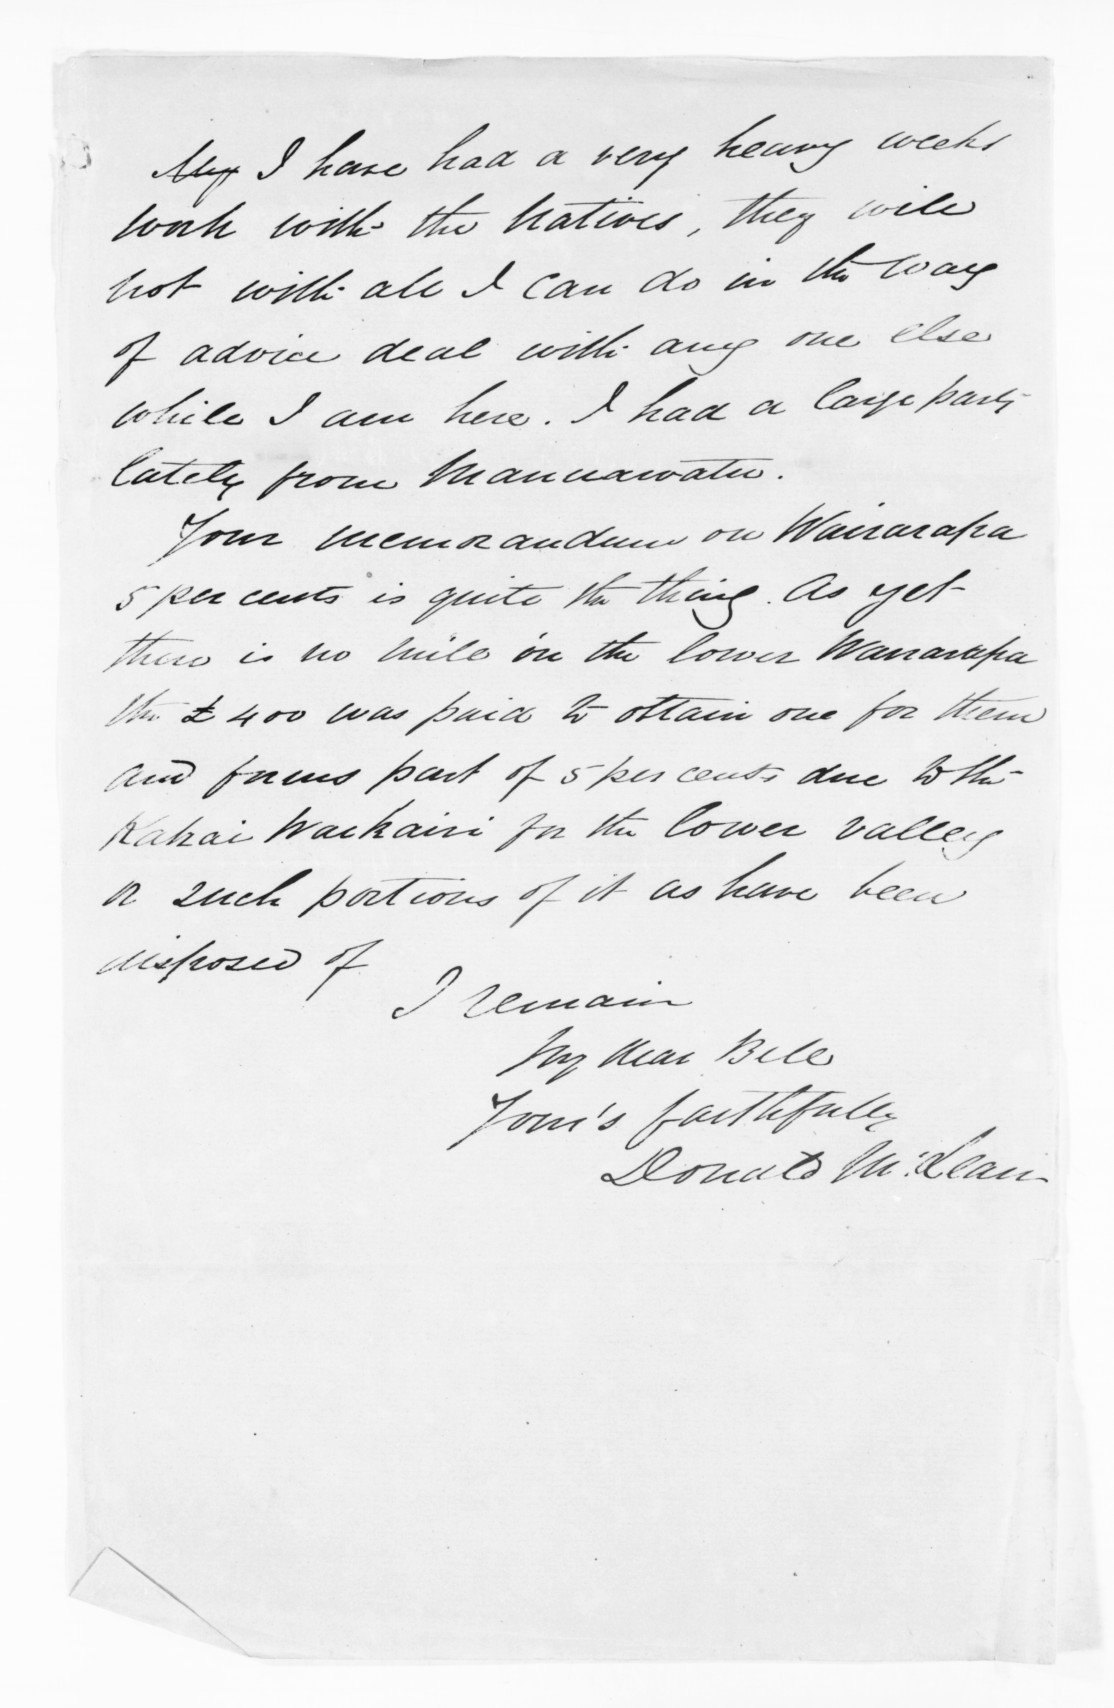 I have had a very heavy weeks
work with the Natives, they will
not with all I can do in the way
of advice deal with any one else
while I am here. I had a large party
lately from Mannawatu.
Your memorandum on Wairarapa
5 per cents is quite the thing. As yet
there is no mile in the lower Wairarapa
the £400 was paid to obtain one for them
and forms part of 5 per cents due to the
for the lower valley
or such portions of it as have been
disposed of
I remain
My dear Bell
Your's faithfully
Donald McLean